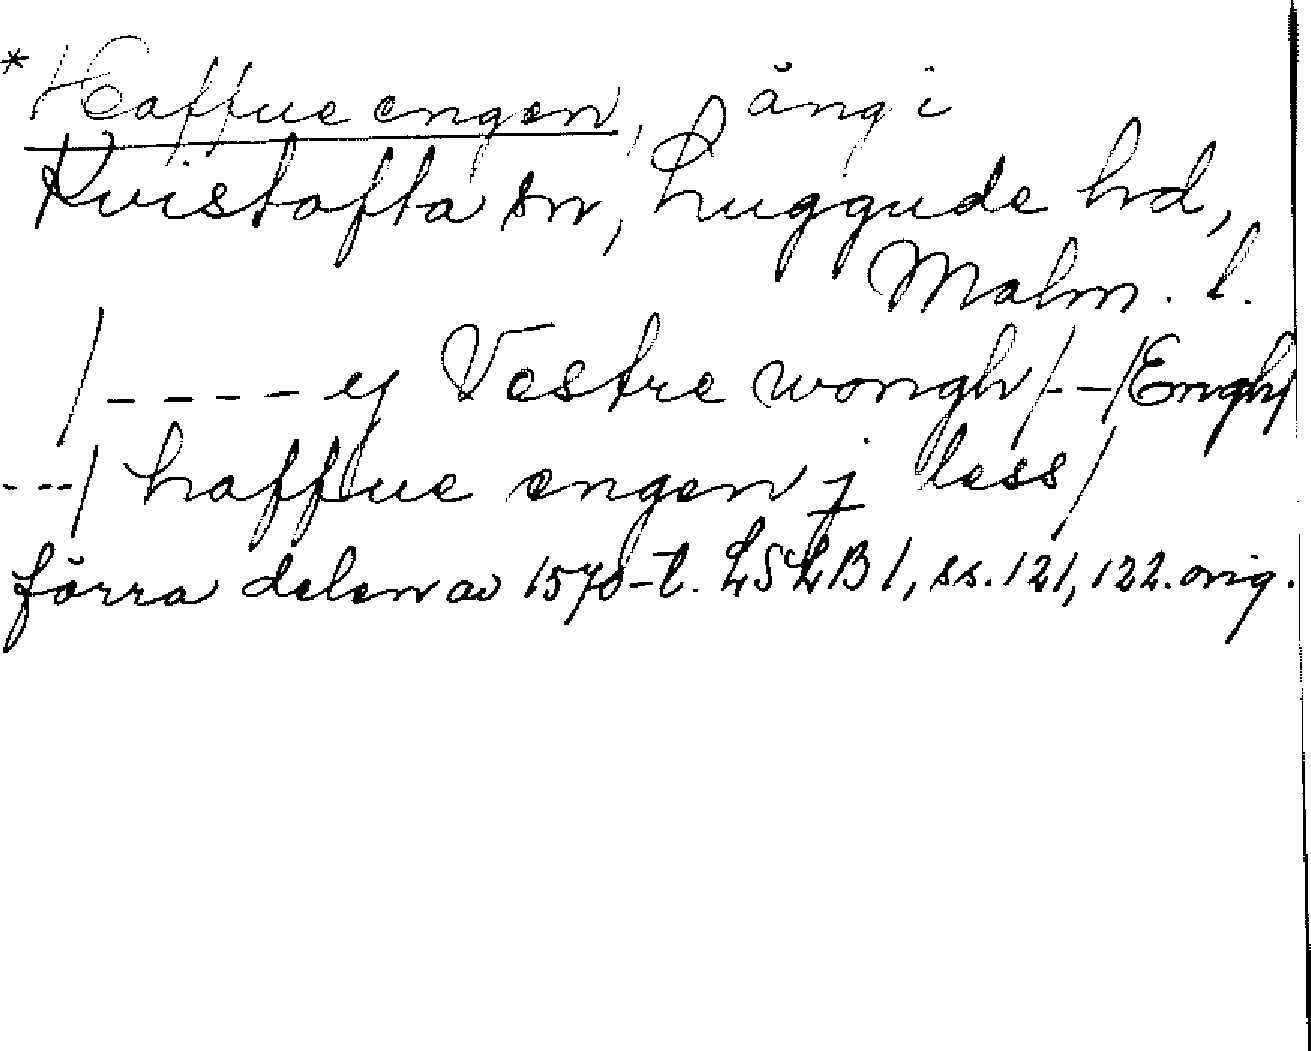 * Haffue engen, äng i
Kvistofta sn, Luggude hd,
Malm. l.
/----- ej Vestre wongh/--/Engh/
---/ haffue engen j less/
förra delen av 1570-t. LSLB 1, ss. 121, 122. orig.